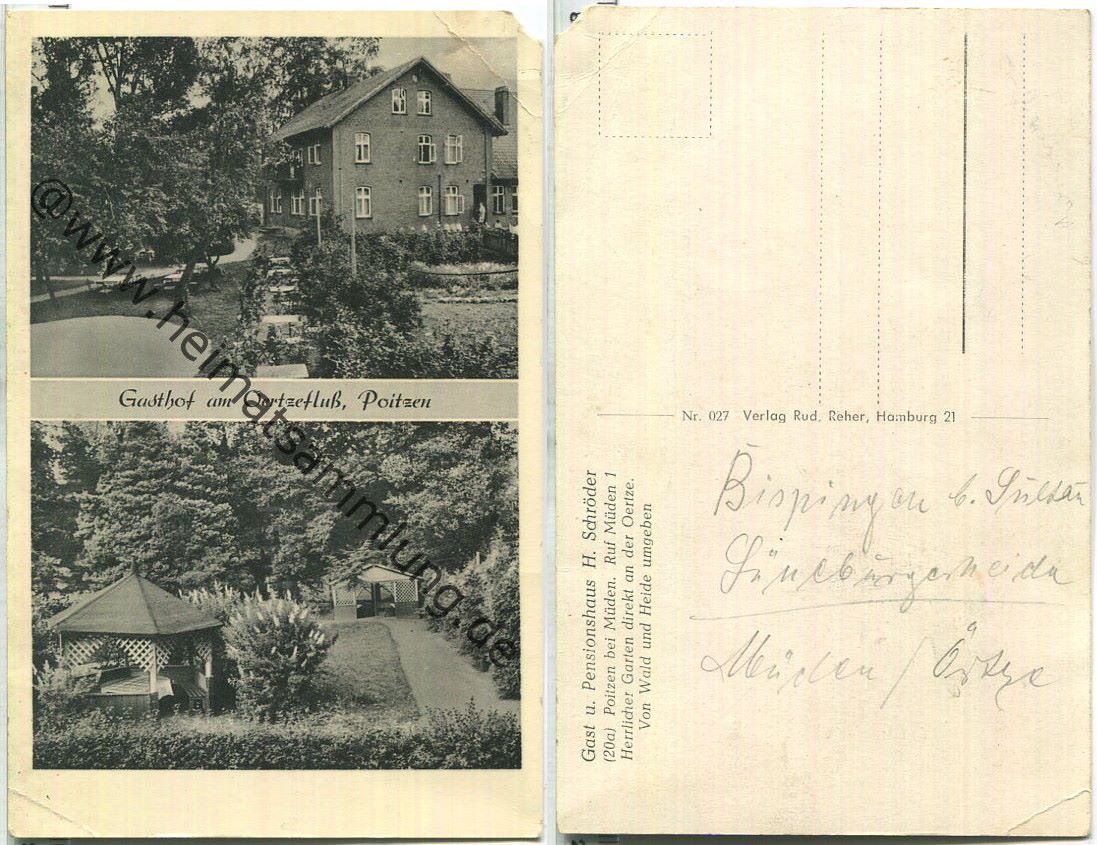 Gasthof am Oertzefluß, Poitzen
@www.heimatsammlung.de
Nr. 027 Verlag Rud. Reher, Hamburg 21
Gast u. Pensionshaus H. Schröder
(20a) Poitzen bei Müden. Ruf Müden 1
Herrlicher Garten direkt an der Oertze.
Von Wald und Heide umgeben
Bispingen b. Soltau
Lüneburgerheide
Müden / Örtze